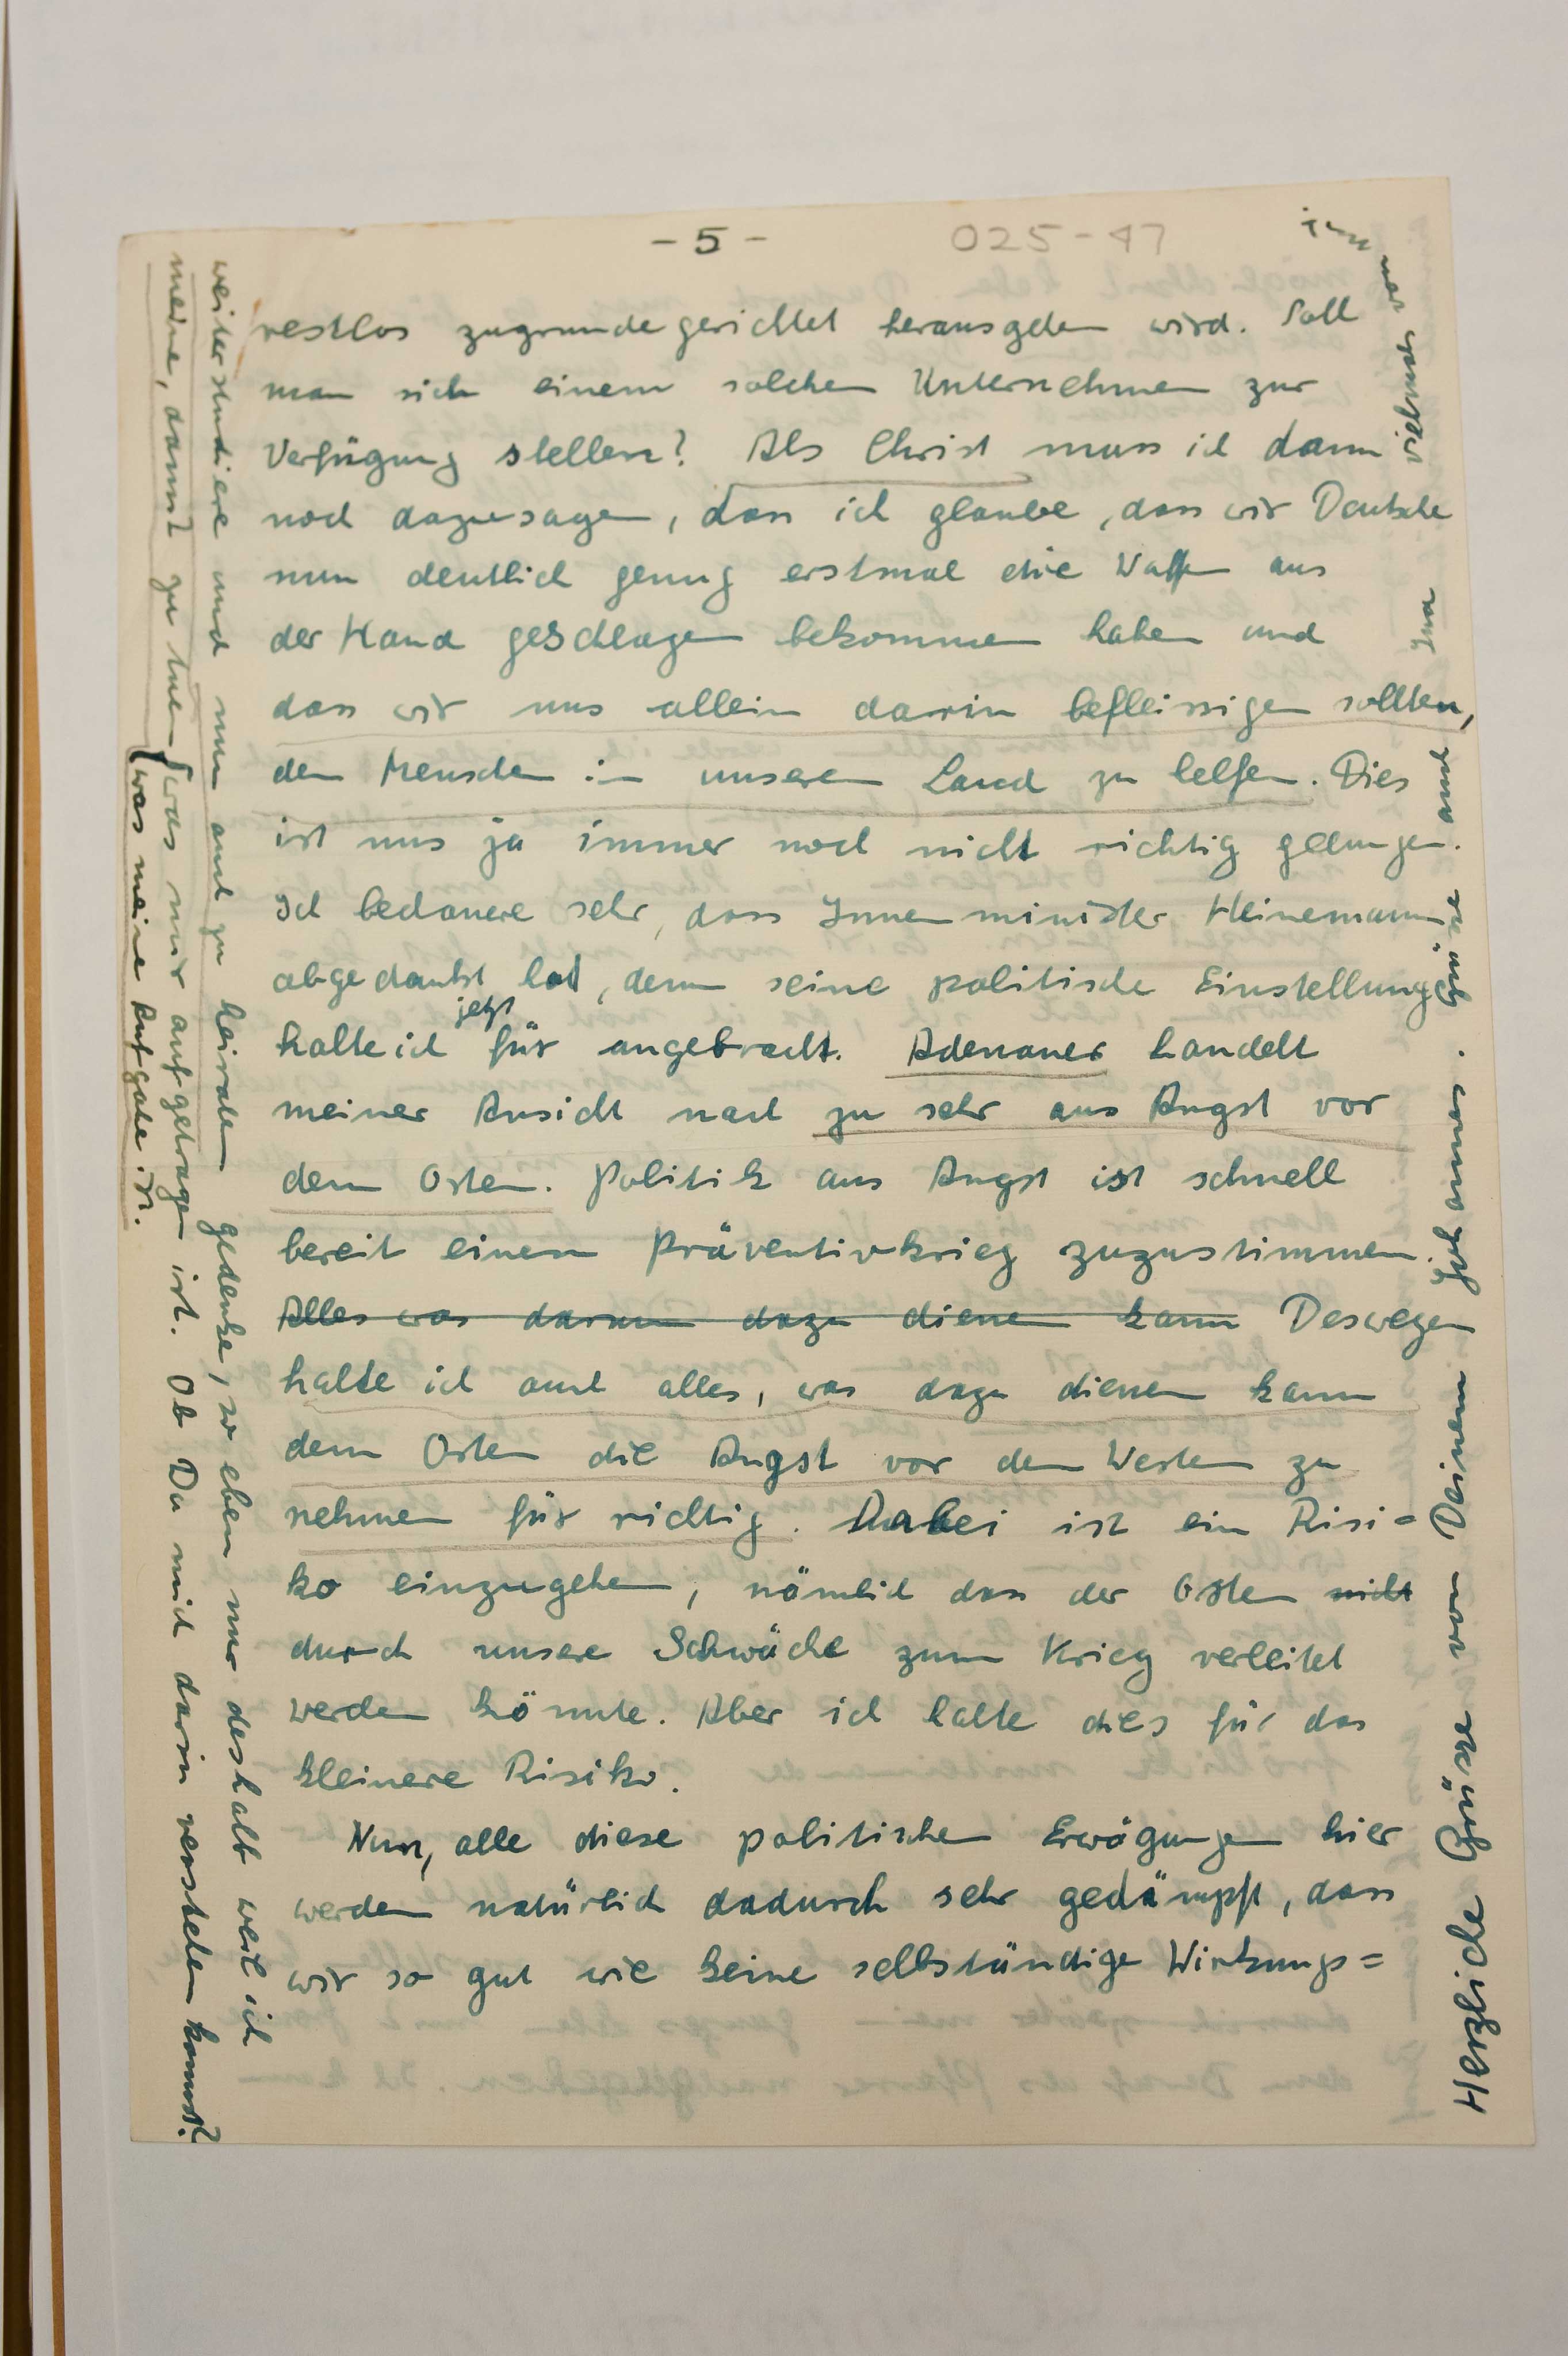 - 5 -
025-47
restlos zugrundegerichtet herausgehen wird. Soll
man sich einem solchen Unternehmen zur
Verfügung stellen? Als Christ muss ich dann
noch dazusagen, dass ich glaube, dass wir Deutsche
nun deutlich genug erstmal die Waffen aus
der Hand geschlagen bekommen haben und
dass wir uns allein darin befleissigen sollten,
den Menschen in unserem Land zu helfen. Dies
ist uns ja immer noch nicht richtig gelungen.
Ich bedauere sehr, dass Innenminister Heinemann
abgedankt hat, denn seine politische Einstellung
jetzt
halte ich für angebracht. Adenauer handelt
meiner Ansicht nach zu sehr aus Angst vor
dem Osten. Politik aus Angst ist schnell
bereit einem Präventivkrieg zuzustimmen.
Alles was darum dazu dienen kann Deswegen
halte ich auch alles, was dazu dienen kann
dem Osten die Angst vor dem Westen zu
nehmen für richtig. Dabei ist ein Risi=
ko einzugehen, nämlich dass der Osten nicht
durch unsere Schwäche zum Krieg verleitet
werden könnte. Aber ich halte dies für das
kleinere Risiko.
Nun, alle diese politischen Erwägungen hier
werden natürlich dadurch sehr gedämpft, dass
wir so gut wie keine selbständige Wirkungs=
weiterstudiere und nun auch zu heiraten gedenke, so eben nur deshalb weil ich
meine, damit zu tun was mir aufgetragen ist. Ob Du mich darin verstehen kannst?
was meine Aufgabe ist.
Herzliche Grüsse von Deinem Johannes. Grüsse auch
vielmals von